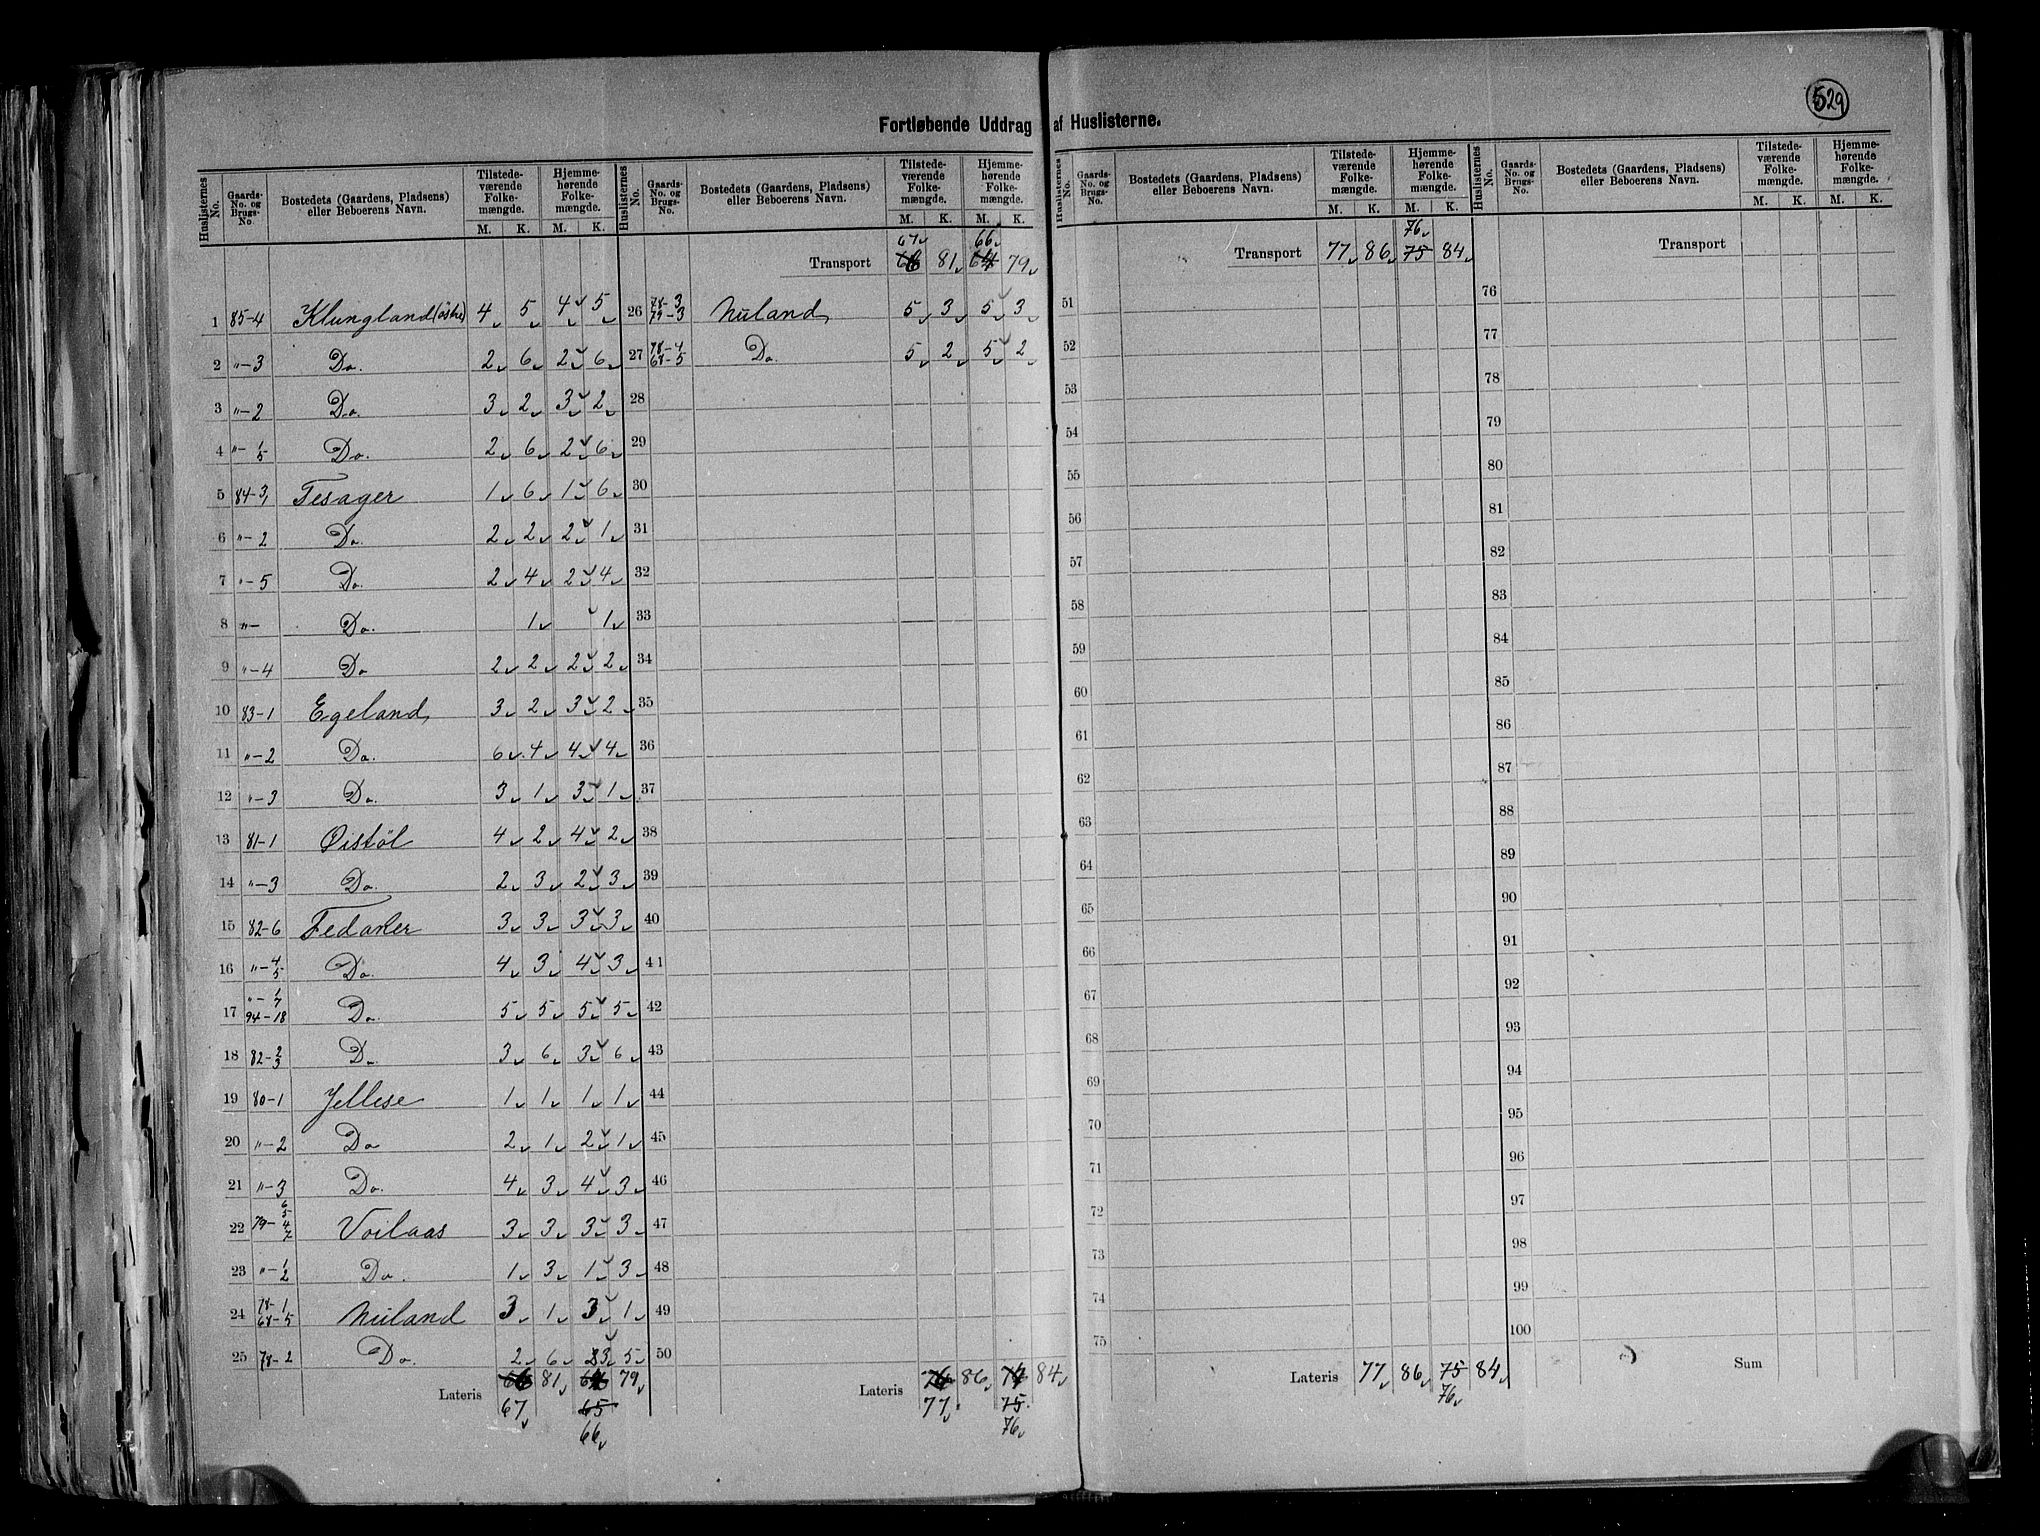 529
Fortløbende Uddrag af Huslisterne.
Huslisternes No. Gaards-No. og Brugs-No. Bostedets (Gaardens, Pladsens) eller Beboerens Navn. Tilstede-værende Folke-mængde. Hjemme-hørende Folke-mængde.
M. K. M. K.
1 85-4 Klungland (østre) 4 5 4 5
2 "-3 Do. 2 6 2 6
3 "-2 Do. 3 2 3 2
4 "-1/5 Do. 2 6 2 6
5 84-3 Tesager 1 6 1 6
6 "-2 Do. 2 2 2 1
7 "-5 Do. 2 4 2 4
8 "- Do. 1 1
9 "-4 Do 2 2 2 2
10 83-1 Egeland 3 2 3 2
11 "-2 Do. 6 4 4 4
12 "-3 Do. 3 1 3 1
13 81-1 Øistöl 4 2 4 2
14 "-3 Do. 2 3 2 3
15 82-6 Fedaker 3 3 3 3
16 "-4/5 Do. 4 3 4 3
17 "-1/7 94-18 Do. 5 5 5 5
18 82-2/3 Do. 3 6 3 6
19 80-1 Jellese 1 1 1 1
20 "-2 Do 2 1 2 1
21 "-3 Do. 4 3 4 3
22 79- 6 5 4 7 Voilaas 3 3 3 3
23 "-1/2 Do. 1 3 1 3
24 78-1 68-5 Nuland 3 1 3 1
25 78-2 Do. 2 6 3 5
Lateris 66 81 64 79
67 65
66
Huslisternes No. Gaards-No. og Brugs-No. Bostedets (Gaardens, Pladsens) eller Beboerens Navn. Tilstede-værende Folke-mængde. Hjemme-hørende Folke-mængde.
M. K. M. K.
67 66
Transport 66 81 64 79
26 78-3 79-3 Nuland 5 3 5 3
27 78-4 68-5 Do. 5 2 5 2
28
29
30
31
32
33
34
35
36
37
38
39
40
41
42
43
44
45
46
47
48
49
50
Lateris 76 86 74 84
77 75
76
Huslisternes No. Gaards-No. og Brugs-No. Bostedets (Gaardens, Pladsens) eller Beboerens Navn. Tilstede-værende Folke-mængde. Hjemme-hørende Folke-mængde.
M. K. M. K.
76
Transport 77 86 75 84
51
52
53
54
55
56
57
58
59
60
61
62
63
64
65
66
67
68
69
70
71
72
73
74
75
Lateris 77 86 75 84
76
Huslisternes No. Gaards-No. og Brugs-No. Bostedets (Gaardens, Pladsens) eller Beboerens Navn. Tilstede-værende Folke-mængde. Hjemme-hørende Folke-mængde.
M. K. M. K.
Transport
76
77
78
79
80
81
82
83
84
85
86
87
88
89
90
91
92
93
94
95
96
97
98
99
100
Sum